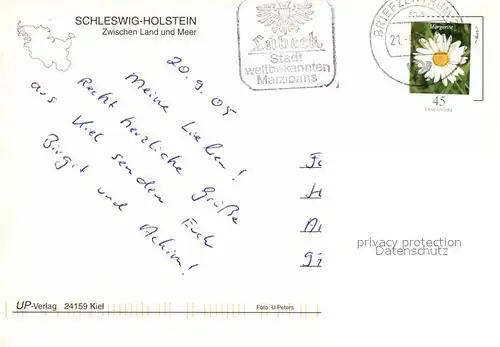 SCHLESWIG-HOLSTEIN
Zwischen Land und Meer
Lübeck
Stadt
weltbekannten
Marzipans
BRIEFZENTRUM
21.
Margerite
45
Deutschland
20.9.05
Meine Lieben!
Recht herzliche Grüße
aus Kiel senden Euch
Birgit und Achim!
privacy protection
Datenschutz
UP-Verlag 24159 Kiel
Foto: U.Peters